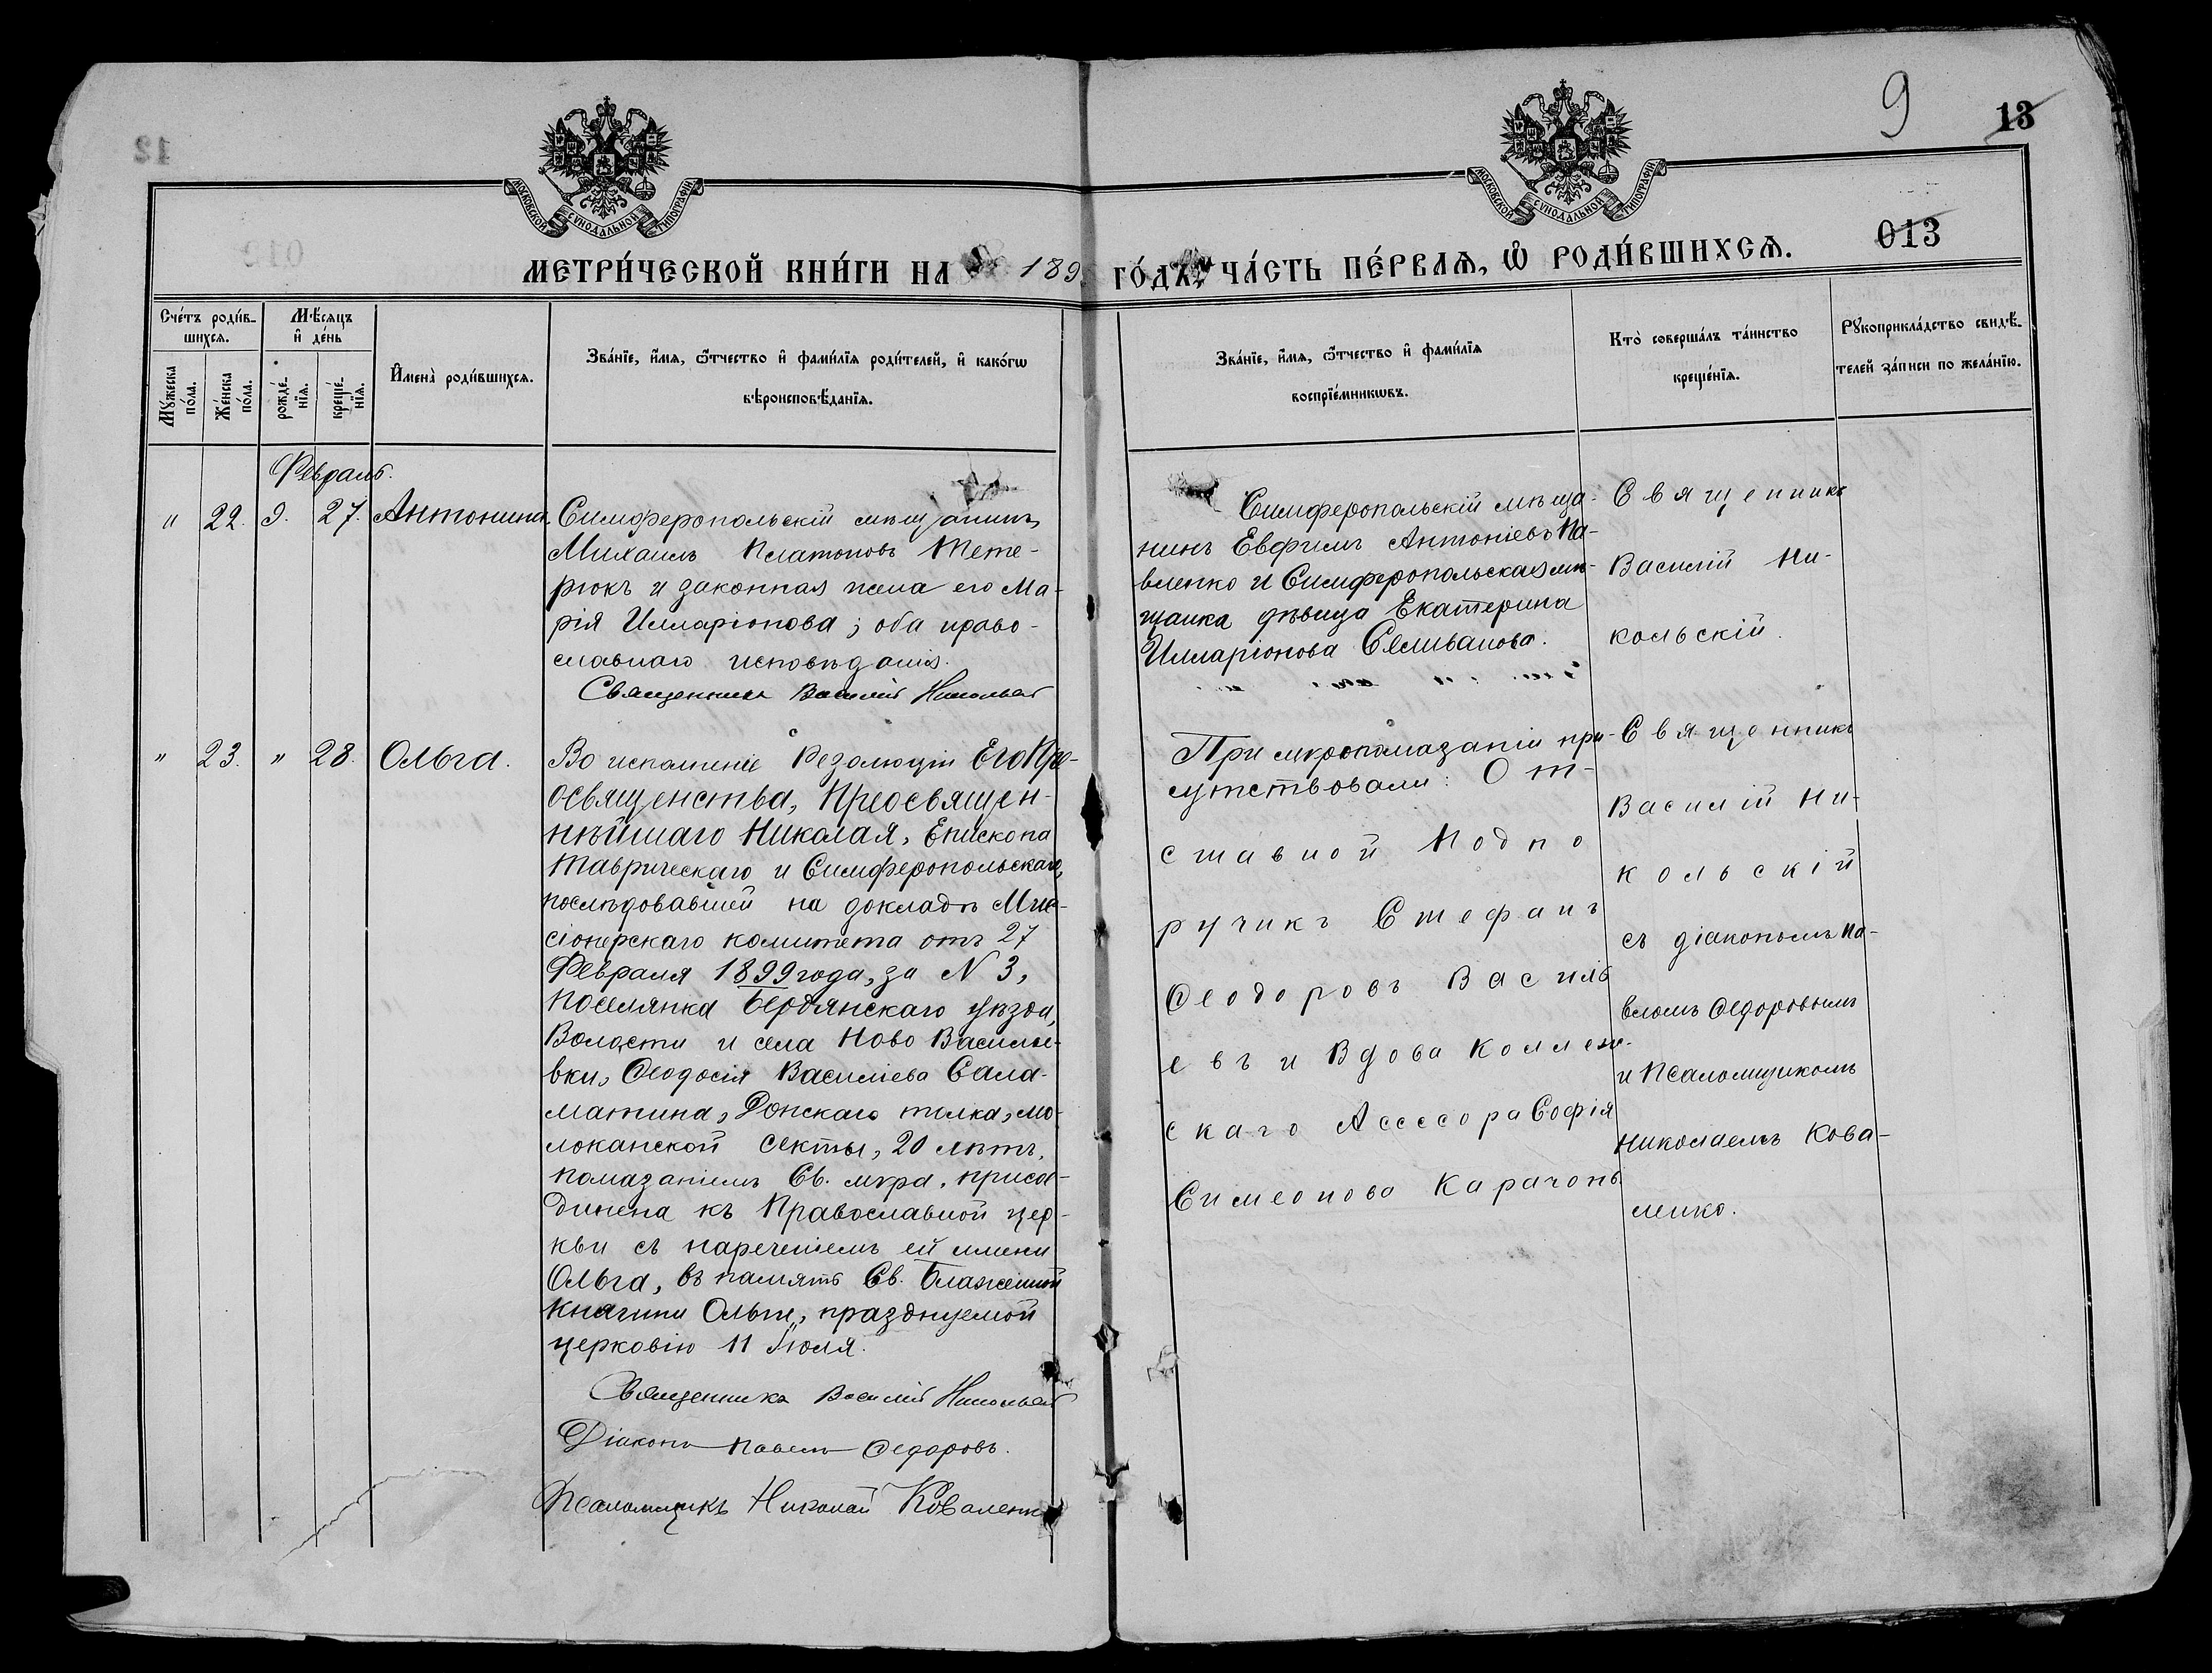 9
13
12
МОСКОВСКОЙ СУНОДАЛЬНОЙ ТИПОГРАФІИ
МОСКОВСКОЙ СУНОДАЛЬНОЙ ТИПОГРАФІИ
013
МЕТРИ́ЧЕСКОЙ КНИ́ГИ НА 189 ГО́ДЪ, ЧА́СТЬ ПЕ́РВАѦ, Ѽ РОДИ́ВШИХСѦ.
Сче́тъ роди́в-
шихсѧ.
Мꙋжеска по́ла.
Же́нска по́ла.
Мѣ́сѧцъ
и҆ де́нь
рожде́-
нїѧ.
креще́-
нїѧ.
И҆мена̀ роди́вшихсѧ.
Зва́нїе, и҆́мѧ, ѻ҆́тчество и҆ фами́лїѧ роди́телей, и҆ како́гѡ
вѣроисповѣ́данїѧ.
Зва́нїе, и҆́мѧ, ѻ҆́тчество и҆ фами́лїѧ
воспрїе́мникѡвъ.
Кто̀ соверша́лъ та́инство
креще́нїѧ.
Рꙋкоприкла́дство свидѣ́-
телей за́писи по жела́нїю.
Февраль.
" 22. 9. 27. Антонина.
Симферопольскій мѣщанинъ
Михаилъ Платоновъ Тете-
рюкъ и законная жена его Ма-
рія Илларіонова; оба право-
славнаго исповѣданія.
Священникъ Василій Никольскій
Симферопольскій мѣща-
нинъ Евфимъ Антоніевъ Па-
вленко и Симферопольская мѣ-
щанка дѣвица Екатерина
Илларіонова Селиванова.
Священникъ
Василій Ни-
кольскій.
" 23. " 28. Ольга.
Во исполненіе Резолюціи Его Пре-
освященства, Преосвящен-
нѣйшаго Николая, Епископа
Таврическаго и Симферопольскаго,
послѣдовавшей на докладѣ Мис-
сіонерскаго комитета отъ 27
Февраля 1899 года, за N 3,
поселянка Бердянскаго уѣзда,
Волости и села Ново Василье-
вки, Ѳеодосія Василіева Сала-
матина, Донскаго толка, мо-
локанской секты, 20 лѣтъ,
помазаніемъ Св. мѵра, присое-
динена къ Православной цер-
кви съ нареченіемъ ей имени
Ольга, въ память Св. Блаженной
Княгини Ольги, празднуемой
церковію 11 Іюля.
Священникъ Василій Никольскій
Діаконъ Павелъ Ѳедоровъ.
Псаломщикъ Николай Коваленко
При мѵропомазаніи при-
сутствовали: От-
ставной Подпо
ручикъ Стефанъ
Ѳеодоровъ Василь
евъ и Вдова Коллеж-
скаго Ассессора Софія
Симеонова Карачонъ
Священникъ
Василій Ни-
кольскій
съ діакономъ Па-
вломъ Ѳедоровымъ
и Псаломщикомъ
Николаемъ Кова-
ленко.